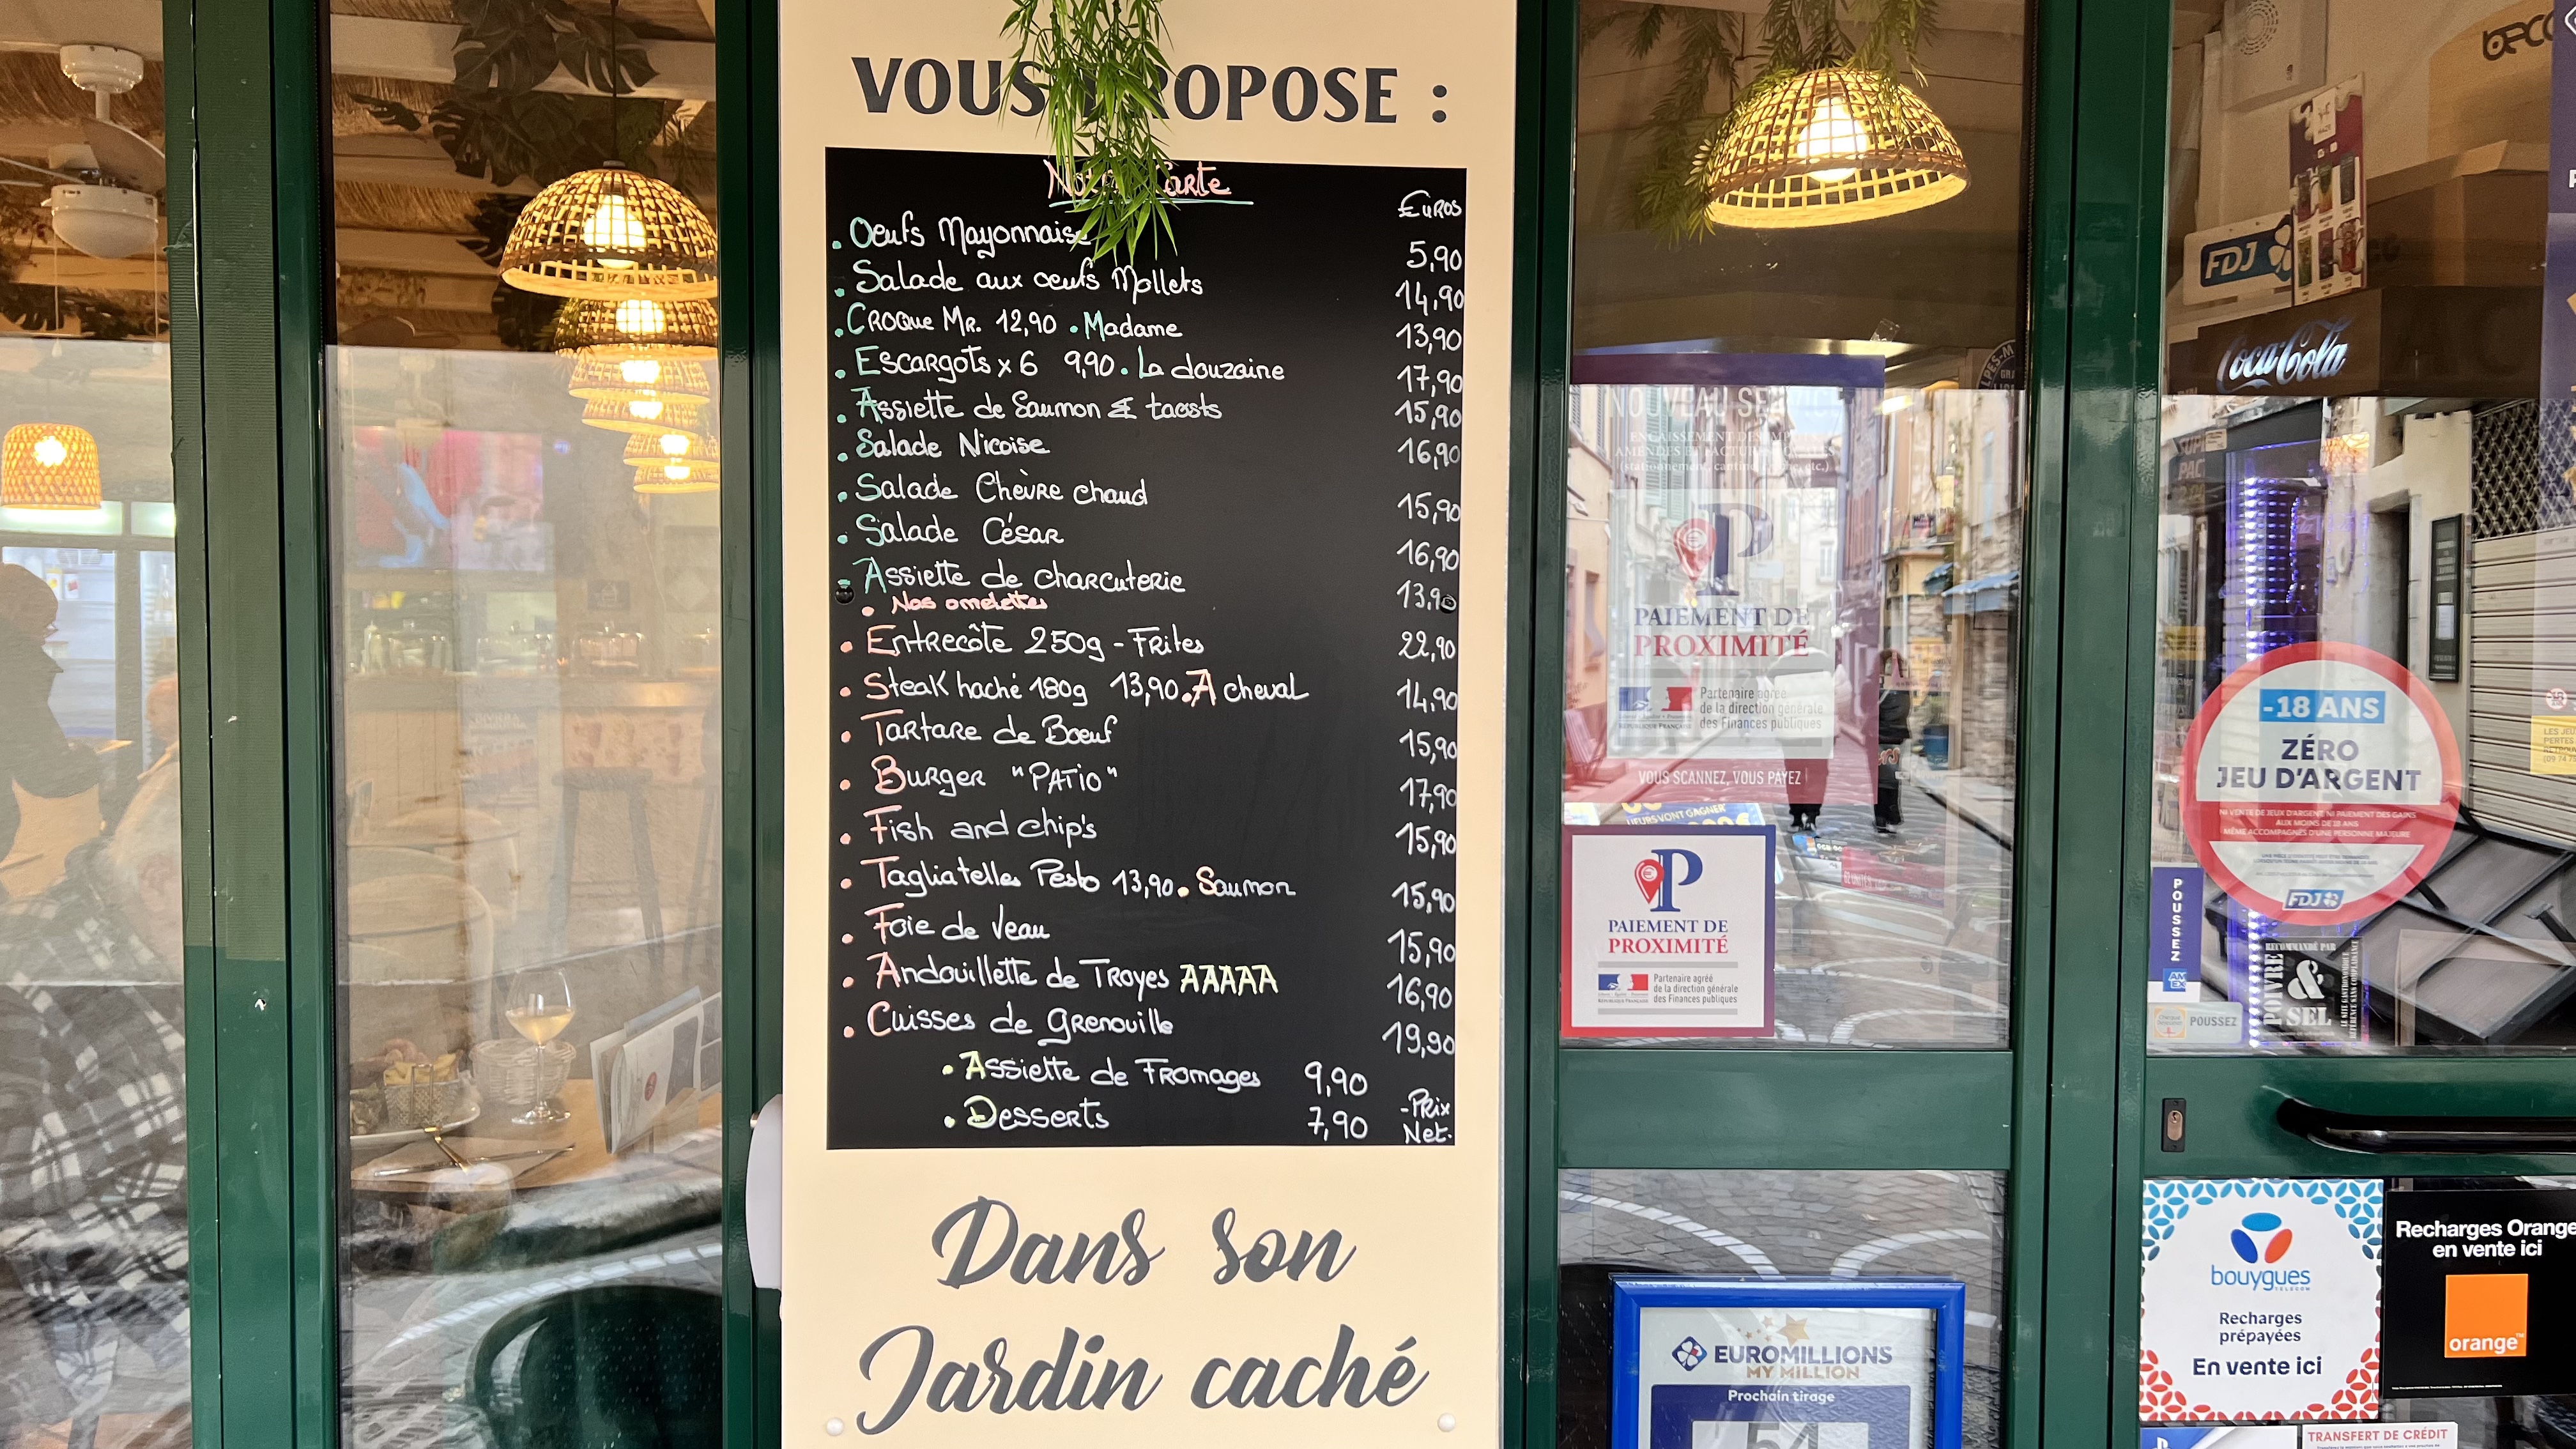 VOUS PROPOSE :
Notre Carte
Euros
Oeufs Mayonnaise 5,90
Salade aux oeufs Mollets 14,90
Croque Mr. 12,90 . Madame 13,90
Escargots x 6 9,90 . La douzaine 17,90
Assiette de Saumon & taosts 15,90
Salade Nicoise 16,90
Salade Chèvre chaud 15,90
Salade César 16,90
Assiette de charcuterie 13,90
Nos omelettes
Entrecôte 250g - Frites 22,90
Steak haché 180g 13,90 . A cheval 14,90
Tartare de Bœuf 15,90
Burger "PATIO" 17,90
Fish and chip's 15,90
Tagliatelles Pesto 13,90 . Saumon 15,90
Foie de veau 15,90
Andouillette de Troyes AAAAA 16,90
Cuisses de grenouille 19,90
Assiette de Fromages 9,90
Desserts 7,90
-Prix
Net.
Dans son
Jardin caché
NOUVEAU
(stationnement, cantine
PAIEMENT DE
PROXIMITÉ
Partenaire agréé
de la direction générale
des Finances publiques
VOUS SCANNEZ, VOUS PAYEZ
PAIEMENT DE
PROXIMITÉ
Partenaire agréé
de la direction générale
des Finances publiques
EUROMILLIONS
MY MILLION
Prochain tirage
54
FDJ
Coca-Cola
-18 ANS
ZÉRO
JEU D'ARGENT
NI VENTE DE JEUX D'ARGENT NI PAIEMENT DES GAINS
AUX MOINS DE 18 ANS
MÊME ACCOMPAGNÉS D'UNE PERSONNE MAJEURE
FDJ
POUSSEZ
AMEX
POUSSEZ
RECOMMANDÉ PAR
POIVRE
&
SEL
bouygues
TELECOM
Recharges
prépayées
En vente ici
Recharges Orange
en vente ici
orange
TRANSFERT DE CRÉDIT